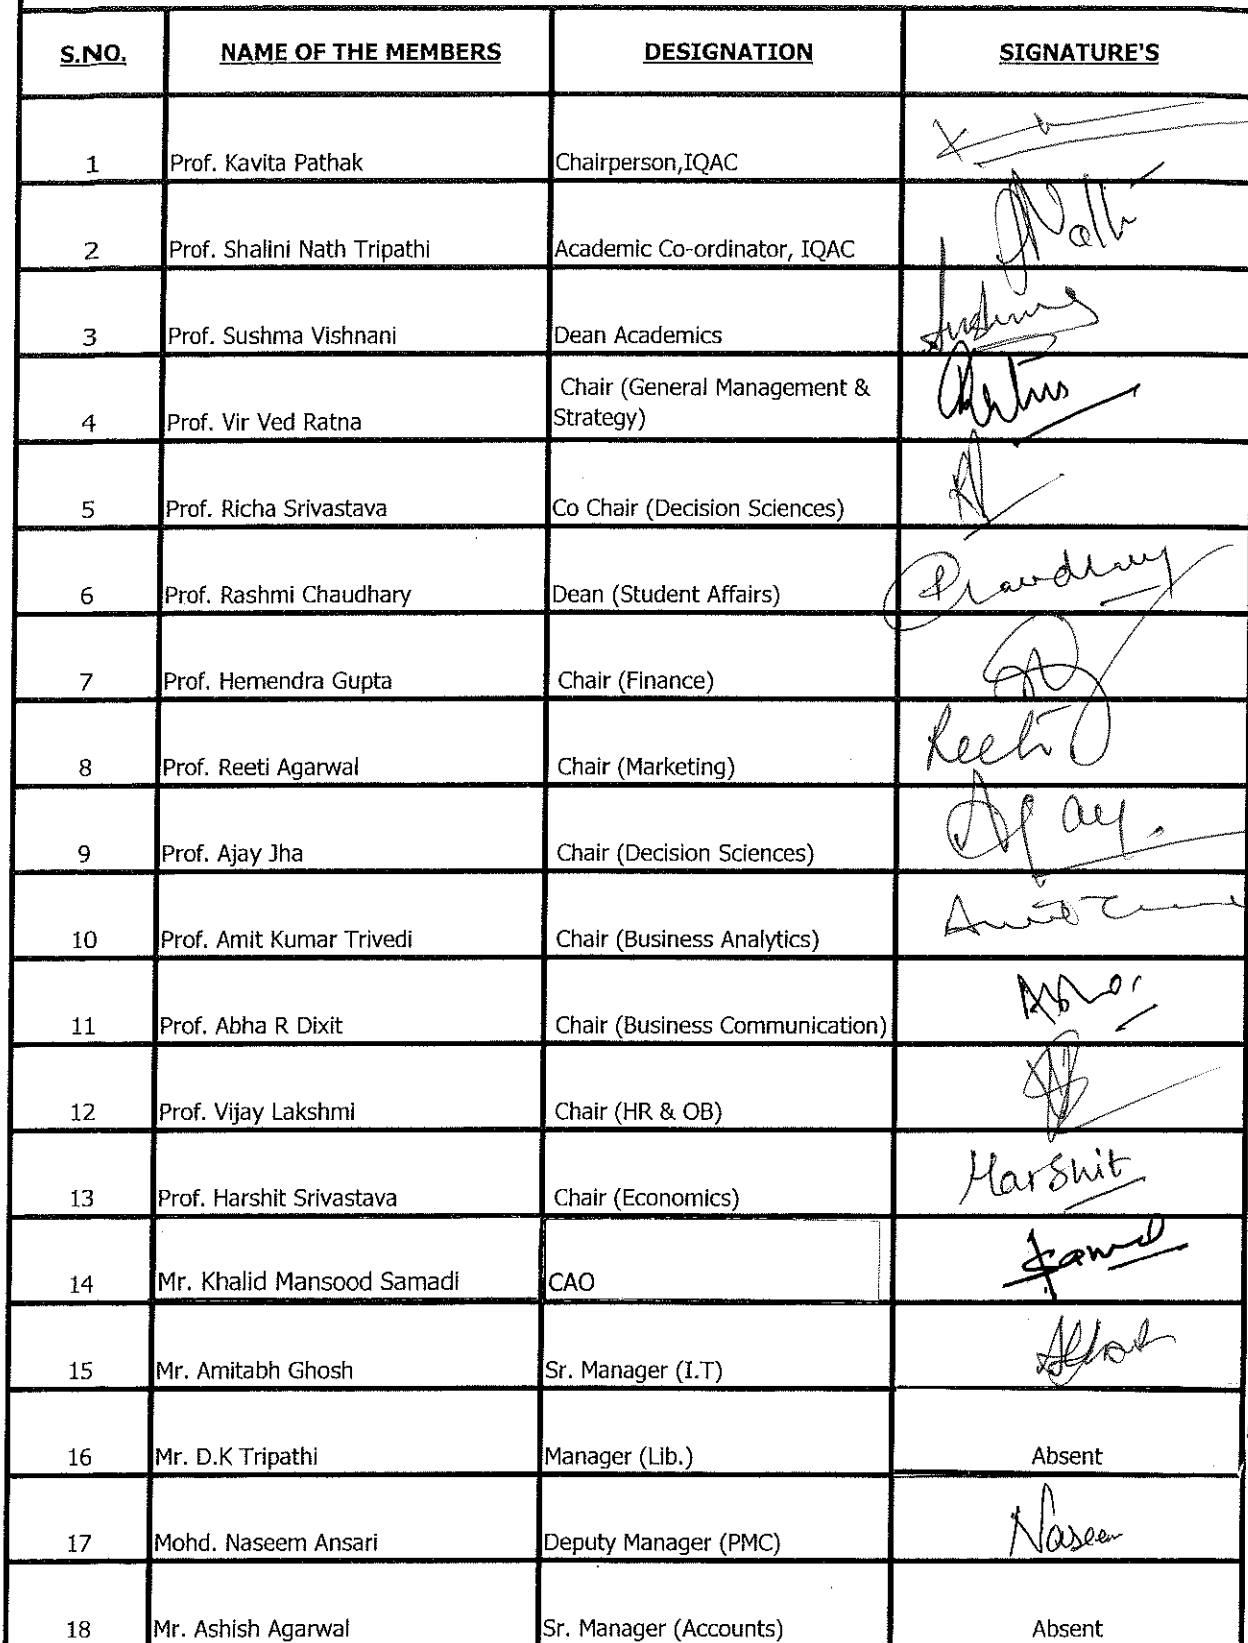 S.NO. NAME OF THE MEMBERS DESIGNATION SIGNATURE'S
1 Prof. Kavita Pathak Chairperson,IQAC
2 Prof. Shalini Nath Tripathi Academic Co-ordinator, IQAC
3 Prof. Sushma Vishnani Dean Academics
4 Prof. Vir Ved Ratna Chair (General Management &
Strategy)
5 Prof. Richa Srivastava Co Chair (Decision Sciences)
6 Prof. Rashmi Chaudhary Dean (Student Affairs)
7 Prof. Hemendra Gupta Chair (Finance)
8 Prof. Reeti Agarwal Chair (Marketing) Reeti
9 Prof. Ajay Jha Chair (Decision Sciences) Ajay
10 Prof. Amit Kumar Trivedi Chair (Business Analytics)
11 Prof. Abha R Dixit Chair (Business Communication) Abha
12 Prof. Vijay Lakshmi Chair (HR & OB)
13 Prof. Harshit Srivastava Chair (Economics) Harshit
14 Mr. Khalid Mansood Samadi CAO
15 Mr. Amitabh Ghosh Sr. Manager (I.T)
16 Mr. D.K Tripathi Manager (Lib.) Absent
17 Mohd. Naseem Ansari Deputy Manager (PMC) Naseem
18 Mr. Ashish Agarwal Sr. Manager (Accounts) Absent